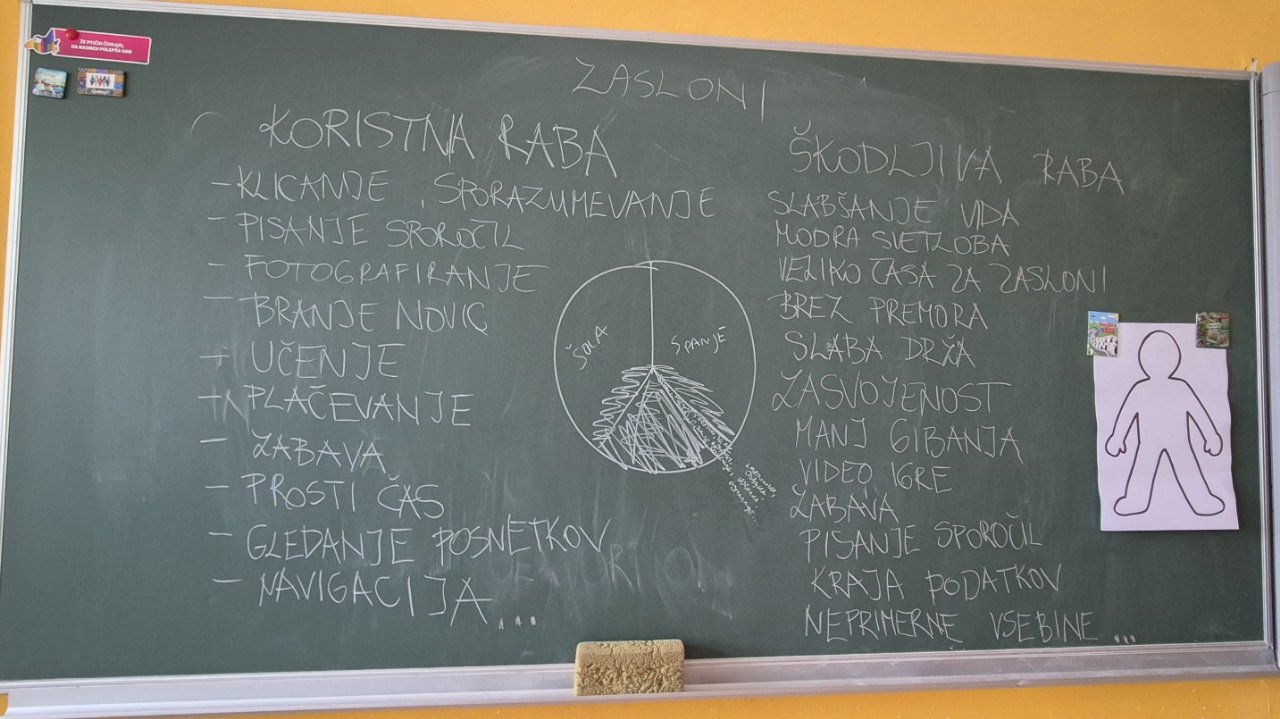 ŽE PTIČKI ČIVKAJO,
DA NASMEH POLEPŠA DAN
ZASLONI
KORISTNA RABA
- KLICANJE, SPORAZUMEVANJE
- PISANJE SPOROČIL
- FOTOGRAFIRANJE
- BRANJE NOVIC
- UČENJE
- PLAČEVANJE
- ZABAVA
- PROSTI ČAS
- GLEDANJE POSNETKOV
- NAVIGACIJA...
ŠOLA
SPANJE
ŠKODLJIVA RABA
SLABŠANJE VIDA
MODRA SVETLOBA
VELIKO ČASA ZA ZASLONI
BREZ PREMORA
SLABA DRŽA
ZASVOJENOST
MANJ GIBANJA
VIDEO IGRE
ZABAVA
PISANJE SPOROČIL
KRAJA PODATKOV
NEPRIMERNE VSEBINE...